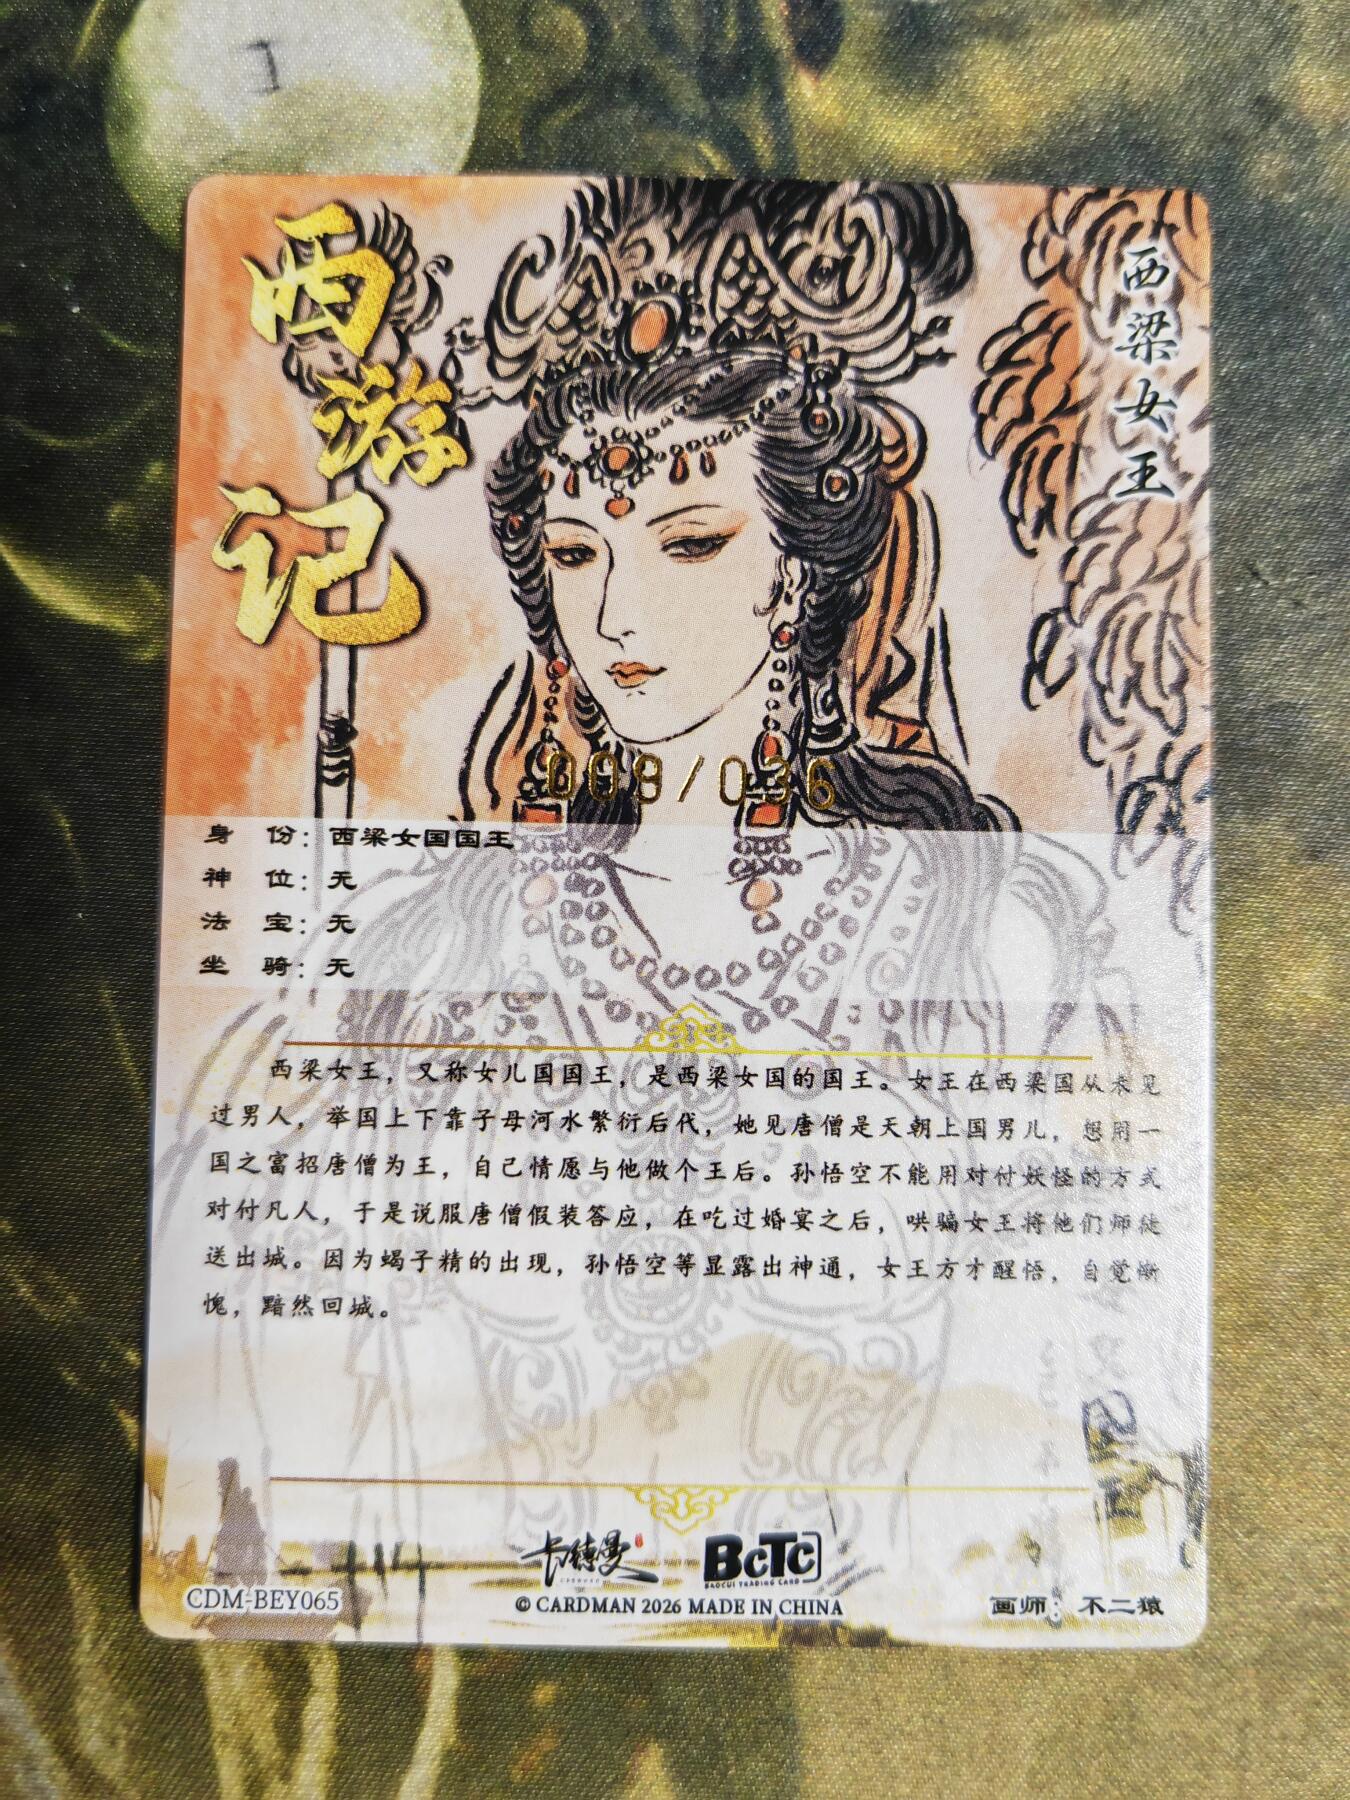 西游记
西梁女王
009/036
身 份：西梁女国国王
神 位：无
法 宝：无
坐 骑：无
西梁女王，又称女儿国国王，是西梁女国的国王。女王在西梁国从未见
过男人，举国上下靠子母河水繁衍后代，她见唐僧是天朝上国男儿，想用一
国之富招唐僧为王，自己情愿与他做个王后。孙悟空不能用对付妖怪的方式
对付凡人，于是说服唐僧假装答应，在吃过婚宴之后，哄骗女王将他们师徒
送出城。因为蝎子精的出现，孙悟空等显露出神通，女王方才醒悟，自觉惭
愧，黯然回城。
卡德曼
BCTC
BAOCUI TRADING CARD
CDM-BEY065
© CARDMAN 2026 MADE IN CHINA
画师：不二猿